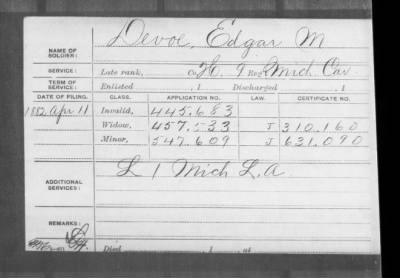 Devoe, Edgar M
NAME OF SOLDIER:
SERVICE: Late rank, Co. H, 9 Reg't Mich. Cav.
TERM OF SERVICE: Enlisted , 1 Discharged , 1
DATE OF FILING. CLASS. APPLICATION NO. LAW. CERTIFICATE NO.
1882 Apr 11 Invalid, 445.683
Widow, 457.533 J 310.160
Minor, 547.609 J 631.090
ADDITIONAL SERVICES: L 1 Mich L.A.
REMARKS:
Died , 1 , at